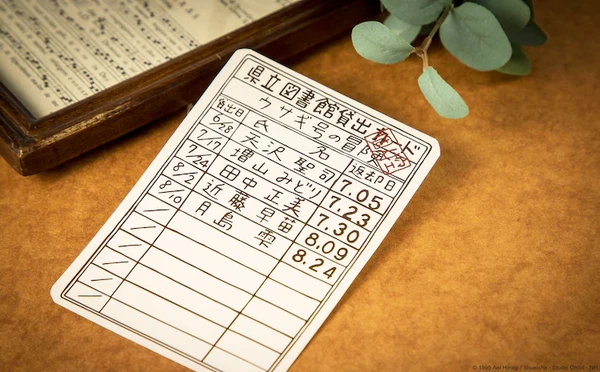 県立図書館貸出カード
ウサギ号の冒険
貸出日 氏 名 返却日
6/28 天沢 聖司 7.05
7/17 増山 みどり 7.23
7/24 田中 正美 7.30
8/2 近藤 早苗 8.09
8/10 月島 雫 8.24
/
/
/
/